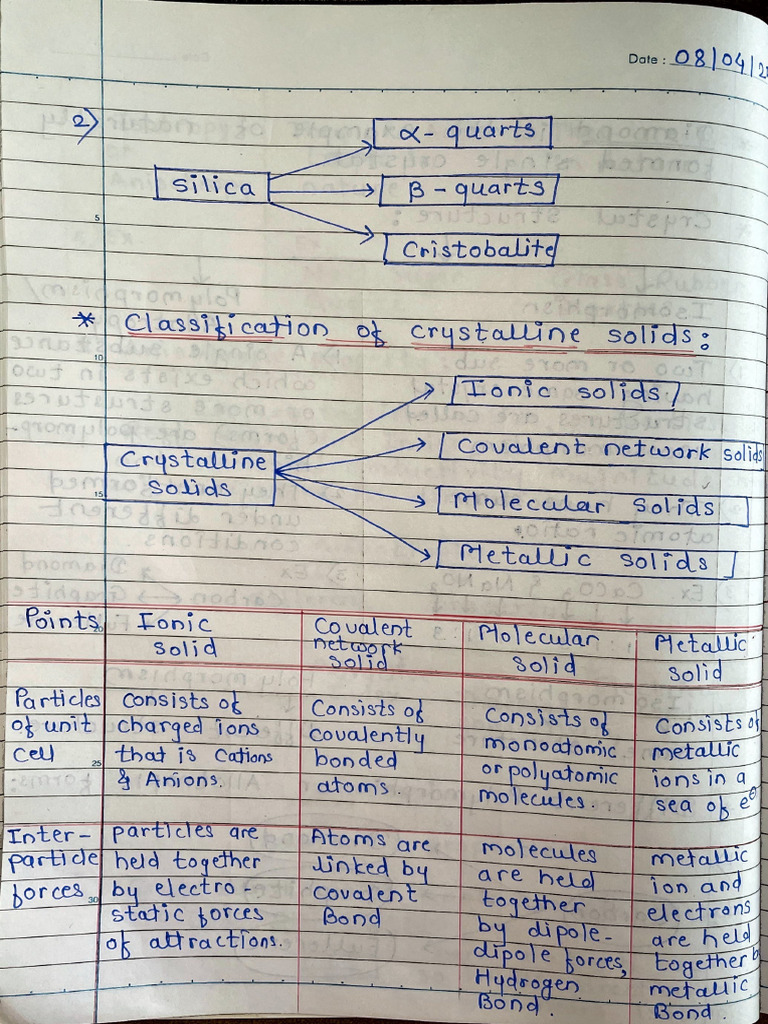 Date : 08/04/2
2)
α- quarts
Silica
β - quarts
5
Cristobalite
* Classification of crystalline solids:
10
Ionic solids
Covalent network solids
Crystalline
solids
15
Molecular solids
Metallic solids
Points 20 Ionic solid
Covalent network solid
Molecular solid
Metallic solid
Particles of unit cell
25
Consists of
charged ions
that is Cations
& Anions.
Consists of
covalently
bonded
atoms.
Consists of
monoatomic
or polyatomic
molecules.
Consists of
metallic
ions in a
sea of e⊖
Inter-
particle
forces
30
particles are
held together
by electro-
static forces
of attractions.
Atoms are
linked by
covalent
Bond
molecules
are held
together
by dipole-
dipole forces,
Hydrogen
Bond.
metallic
ion and
electrons
are held
together b
metallic
Bond.